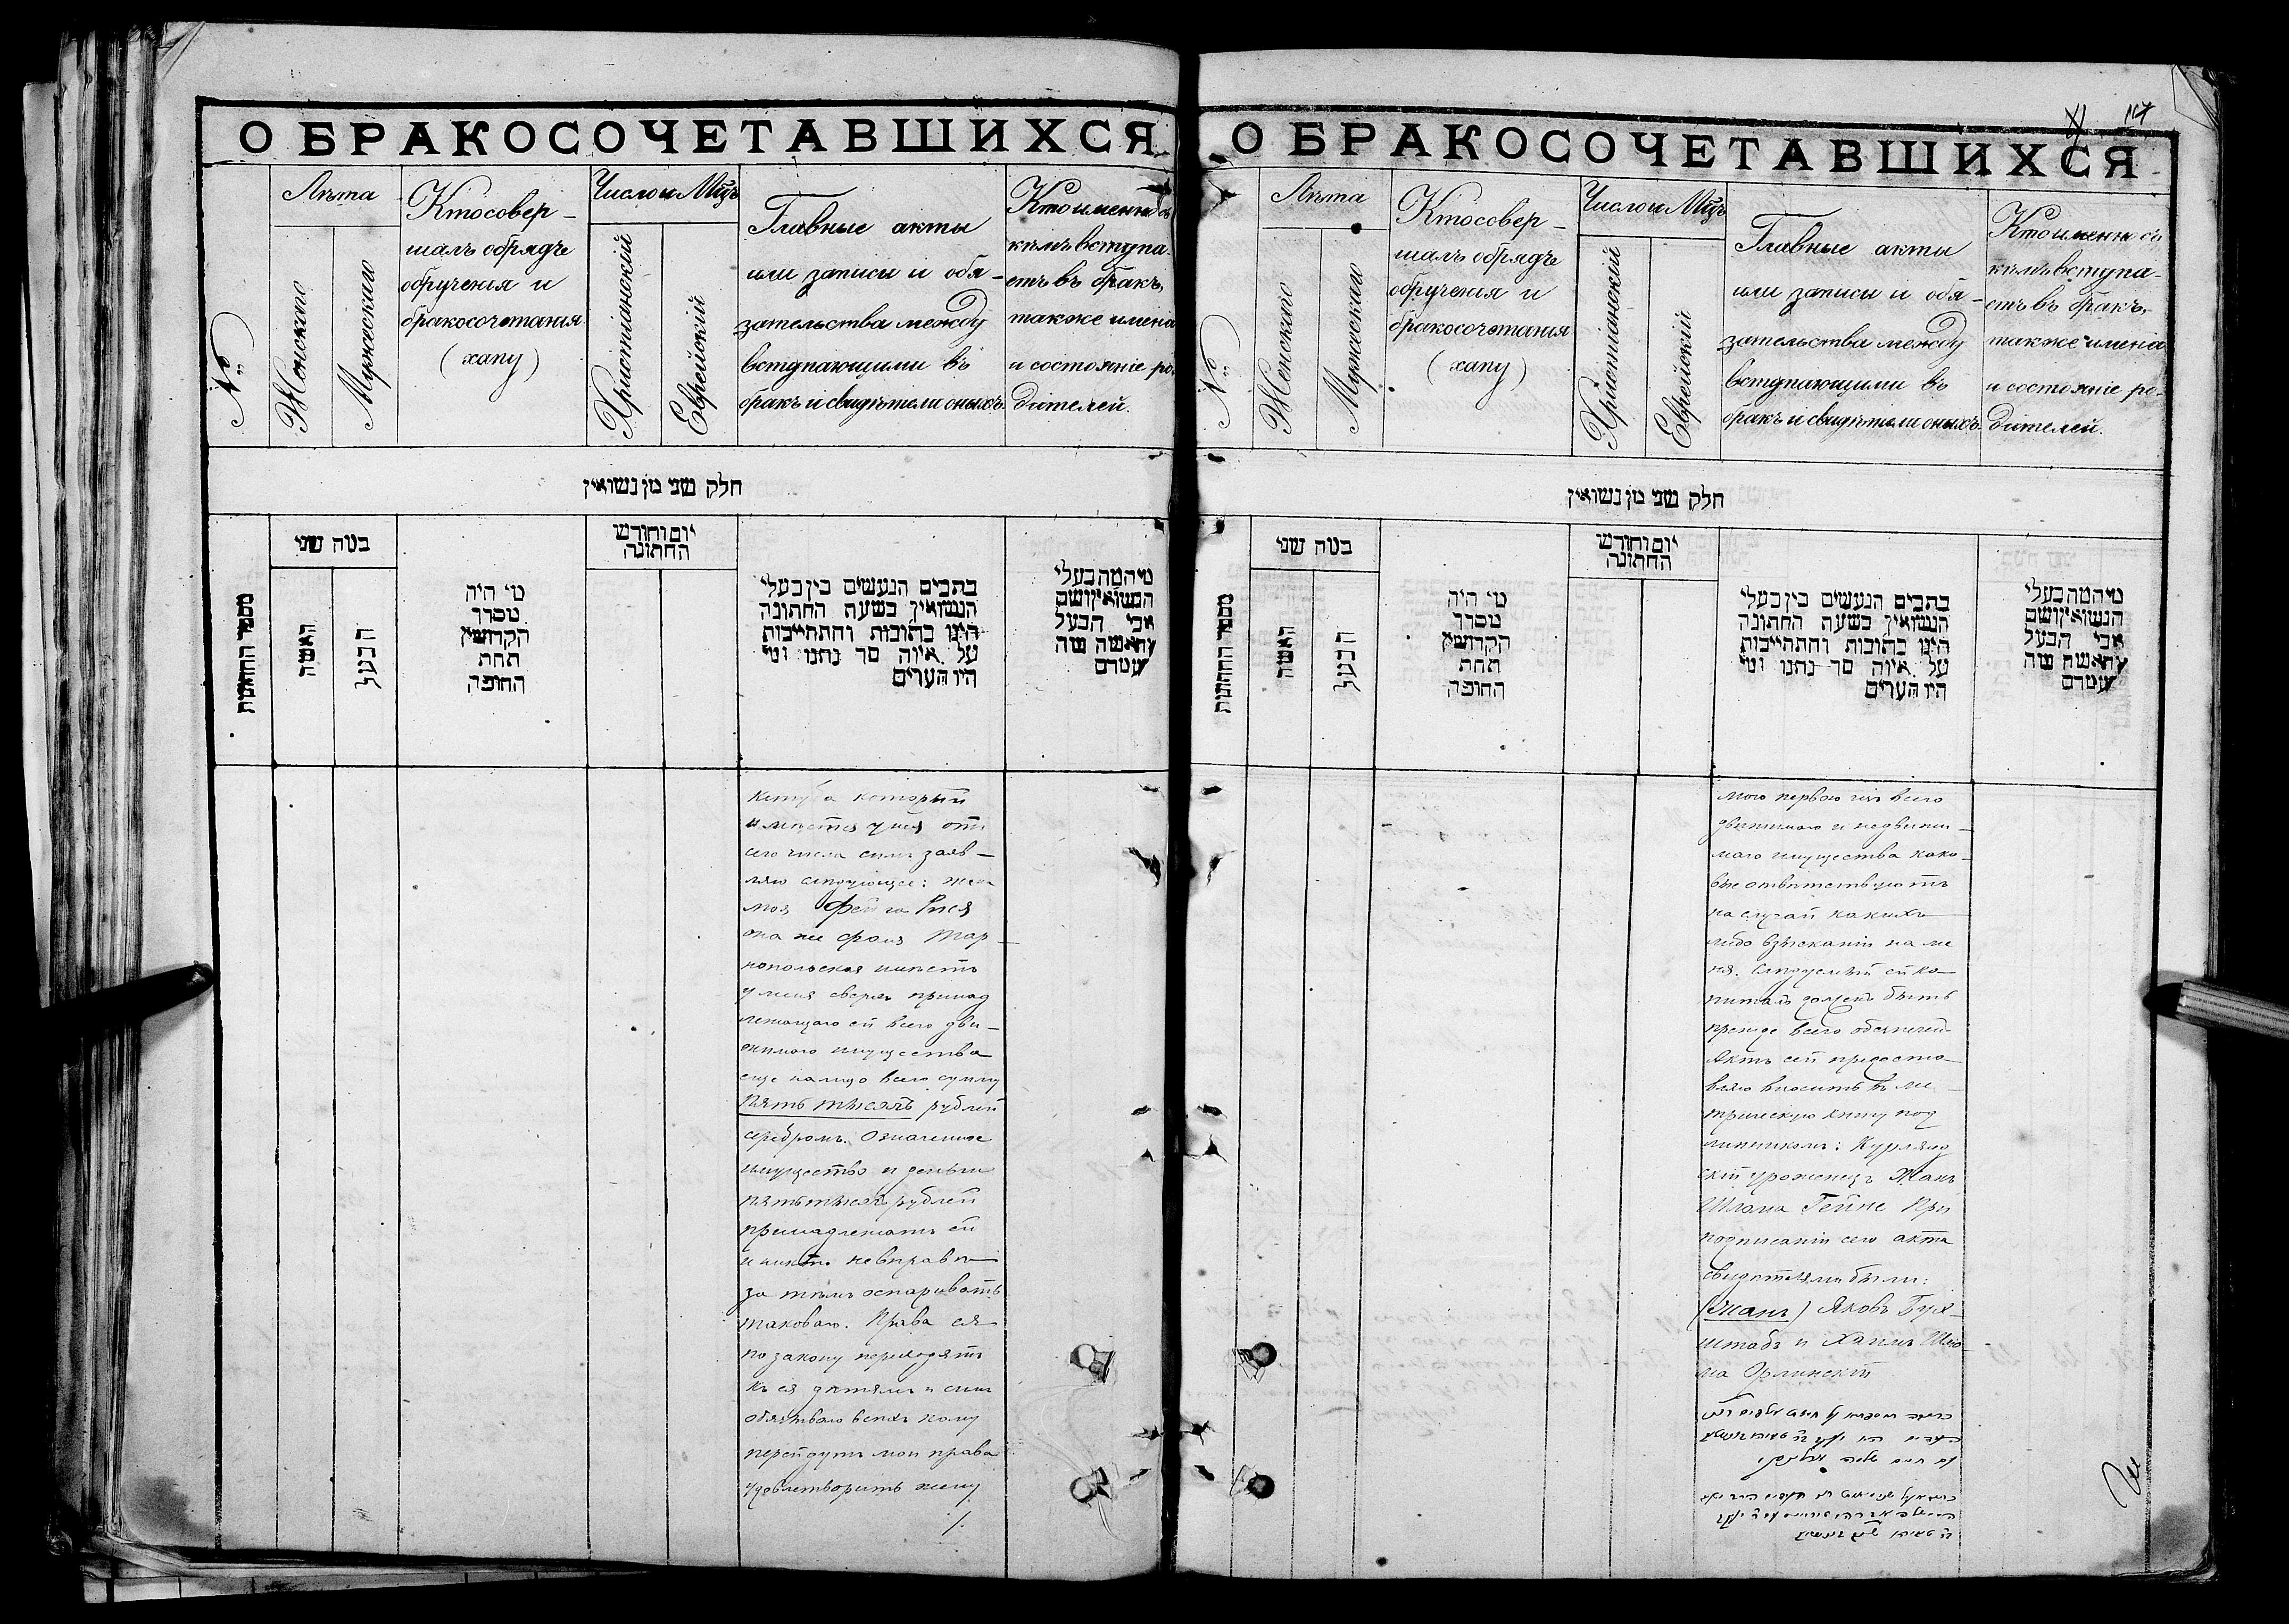 О БРАКОСОЧЕТАВШИХСЯ
№
Лѣта
Женскаго
Мужескаго
Кто совер-
шалъ обрядъ
обрученія и
бракосочетанія
(хапу)
Число и Мцъ
Христіанскій
Еврейскій
Главные акты
или записи и обя-
зательства между
вступающими въ
бракъ и свидѣтели оныхъ.
Кто именно съ
кѣмъ вступа-
етъ въ бракъ,
также имена
и состояніе ро-
дителей.
חלק שני מן נשואין
מספר החתונות
במה שני
האשה
הבעל
מי היה
מסדר
הקדושין
תחת
החופה
יום וחודש
החתונה
כתבים הנעשים בין בעלי
הנשואין בשעת החתונה
היינו כתובות והתחייבות
על איזה סך נתנו ומי
היו העדים
מי המה בעלי
הנשואין ושם
אבי הבעל
והאשה ומה
עמדם
который
имѣется у нея отъ
сего числа симъ заяв-
ляю слѣдующее: жена
моя Фейга Рися
она же Фаня Тар-
нопольская имѣетъ
у меня сверхъ принад
лежащаго ей всего дви-
жимаго имущества
еще на лицо всего сумму
пять тысячъ рублей
серебромъ. Означенное
имущество и деньги
пять тысячъ рублей
принадлежатъ ей
и никто не вправѣ
за тѣмъ оспаривать
таковаго. Права ея
по закону переходятъ
къ ея дѣтямъ и симъ
обязываю всѣхъ кому
перейдутъ мои права
удовлетворить жену
/.
О БРАКОСОЧЕТАВШИХСЯ
№
Лѣта
Женскаго
Мужескаго
Кто совер-
шалъ обрядъ
обрученія и
бракосочетанія
(хапу)
Число и Мцъ
Христіанскій
Еврейскій
Главные акты
или записи и обя-
зательства между
вступающими въ
бракъ и свидѣтели оныхъ.
Кто именно съ
кѣмъ вступа-
етъ въ бракъ,
также имена
и состояніе ро-
дителей.
חלק שני מן נשואין
מספר החתונות
במה שני
האשה
הבעל
מי היה
מסדר
הקדושין
תחת
החופה
יום וחודש
החתונה
כתבים הנעשים בין בעלי
הנשואין בשעת החתונה
היינו כתובות והתחייבות
על איזה סך נתנו ומי
היו העדים
מי המה בעלי
הנשואין ושם
אבי הבעל
והאשה ומה
עמדם
мою первою изъ всего
движимаго и недвижи-
маго имущества како-
вые отвѣтствуютъ
на случай какихъ
либо взысканій на ме
ня. Слѣдуемый ей ка
питалъ долженъ быть
прежде всего обезпечен
Актъ сей предоста-
вляю вносить въ ме-
трическую книгу под
линникомъ: Курлянд
скій уроженецъ Жанъ
Шлома Гейне При
подписаніи сего акта
свидѣтелями были:
(Жанъ) Яковъ
и Хаимъ Шло-
ма Орлинскій